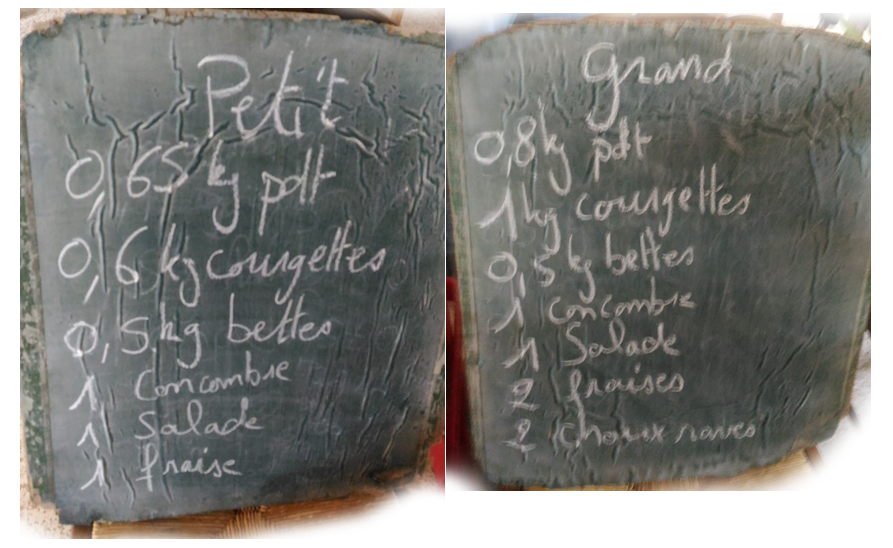 Petit
0,65 kg pdt
0,6 kg courgettes
0,5 kg bettes
1 Concombre
1 Salade
1 fraise
Grand
0,8 kg pdt
1 kg courgettes
0,5 kg bettes
1 Concombre
1 Salade
2 fraises
2 choux raves